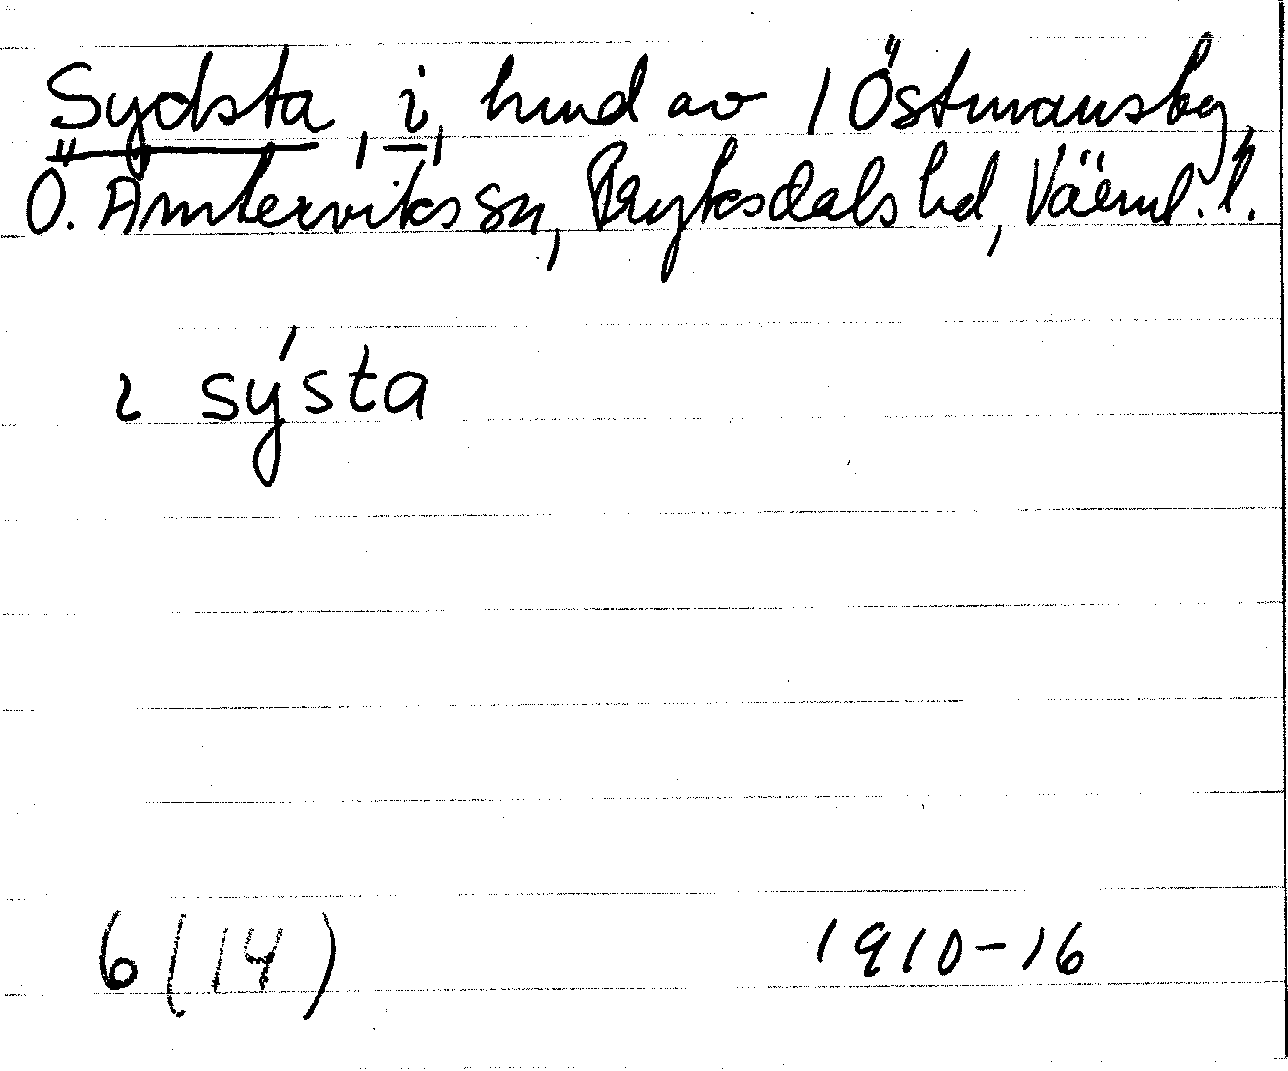 Sydsta, i, hmd av 1 Östmansby,
Ö. Ämterviks sn, Fryksdals hd, Värml. l.
ı sýsta
6 (14) 1910-16